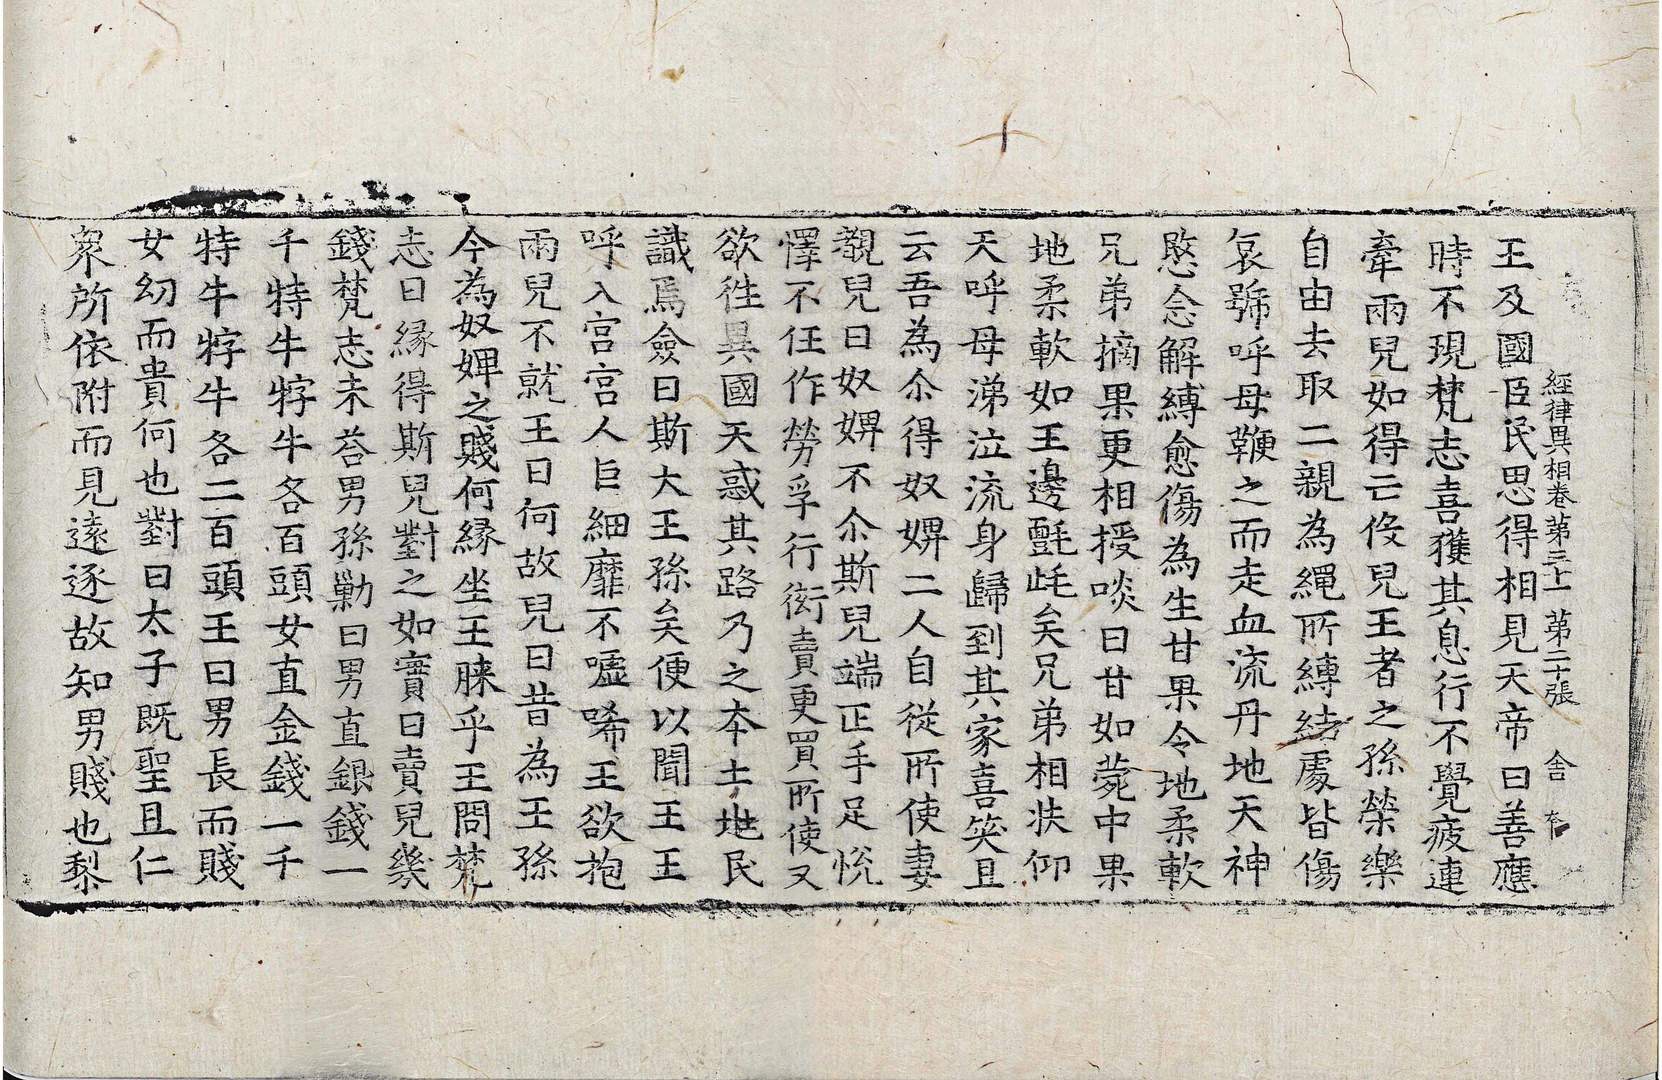 經律異相卷第三十一 第二十張 舍
王及國臣民思得相見天帝曰善應
時不現梵志喜獲其息行不覺疲連
牽兩兒如得云伇兒王者之孫榮樂
自由去取二親為繩所縛結處皆傷
哀號呼母鞭之而走血流丹地天神
愍念解縛愈傷為生甘果令地柔軟
兄弟摘果更相授啖曰甘如菀中果
地柔軟如王邊氈毦矣兄弟相扶仰
天呼母涕泣流身歸到其家喜笑且
云吾為尒得奴婢二人自從所使妻
覩兒曰奴婢不尒斯兒端正手足悅
懌不任作勞孚行衒賣更買所使又
欲徃異國天惑其路乃之本土地民
識焉僉曰斯大王孫矣便以聞王王
呼入宮宮人巨細靡不噓唏王欲抱
兩兒不就王曰何故兒曰昔為王孫
今為奴婢之賤何緣坐王膝乎王問梵
志曰緣得斯兒對之如實曰賣兒幾
錢梵志未荅男孫勦曰男直銀錢一
千特牛牸牛各百頭女直金錢一千
特牛牸牛各二百頭王曰男長而賤
女幼而貴何也對曰太子既聖且仁
衆所依附而見遠逐故知男賤也黎